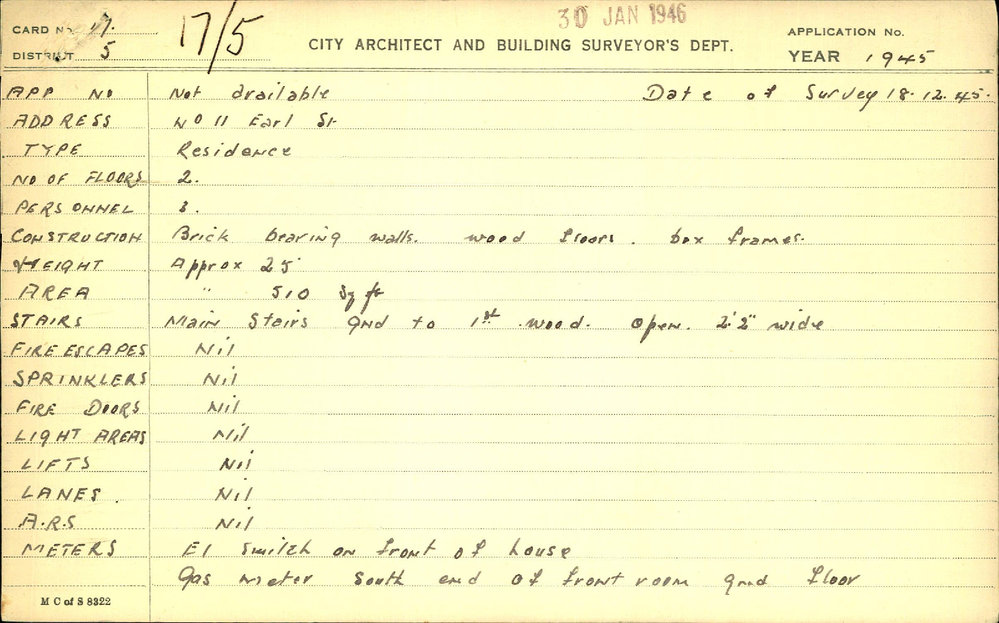 30 JAN 1946
CARD No 17.
17/5
APPLICATION No.
DISTRICT 5
CITY ARCHITECT AND BUILDING SURVEYOR'S DEPT.
YEAR 1945
APP NO Not available Date of Survey 18.12.45.
ADDRESS No 11 Earl St
TYPE Residence
NO OF FLOORS 2.
PERSONNEL 3.
CONSTRUCTION Brick bearing walls. wood floors. box frames.
HEIGHT Approx 25'
AREA " 510 Sq ft
STAIRS Main Stairs gnd to 1st wood. Open. 2'2" wide
FIRE ESCAPES Nil
SPRINKLERS Nil
FIRE DOORS Nil
LIGHT AREAS Nil
LIFTS Nil
LANES. Nil
A.R.S Nil
METERS El switch on front of house
Gas meter South end of front room gnd floor
M C of S 8322